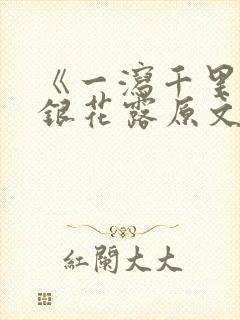 《一瀉千里
銀花露原文
紅闌大大